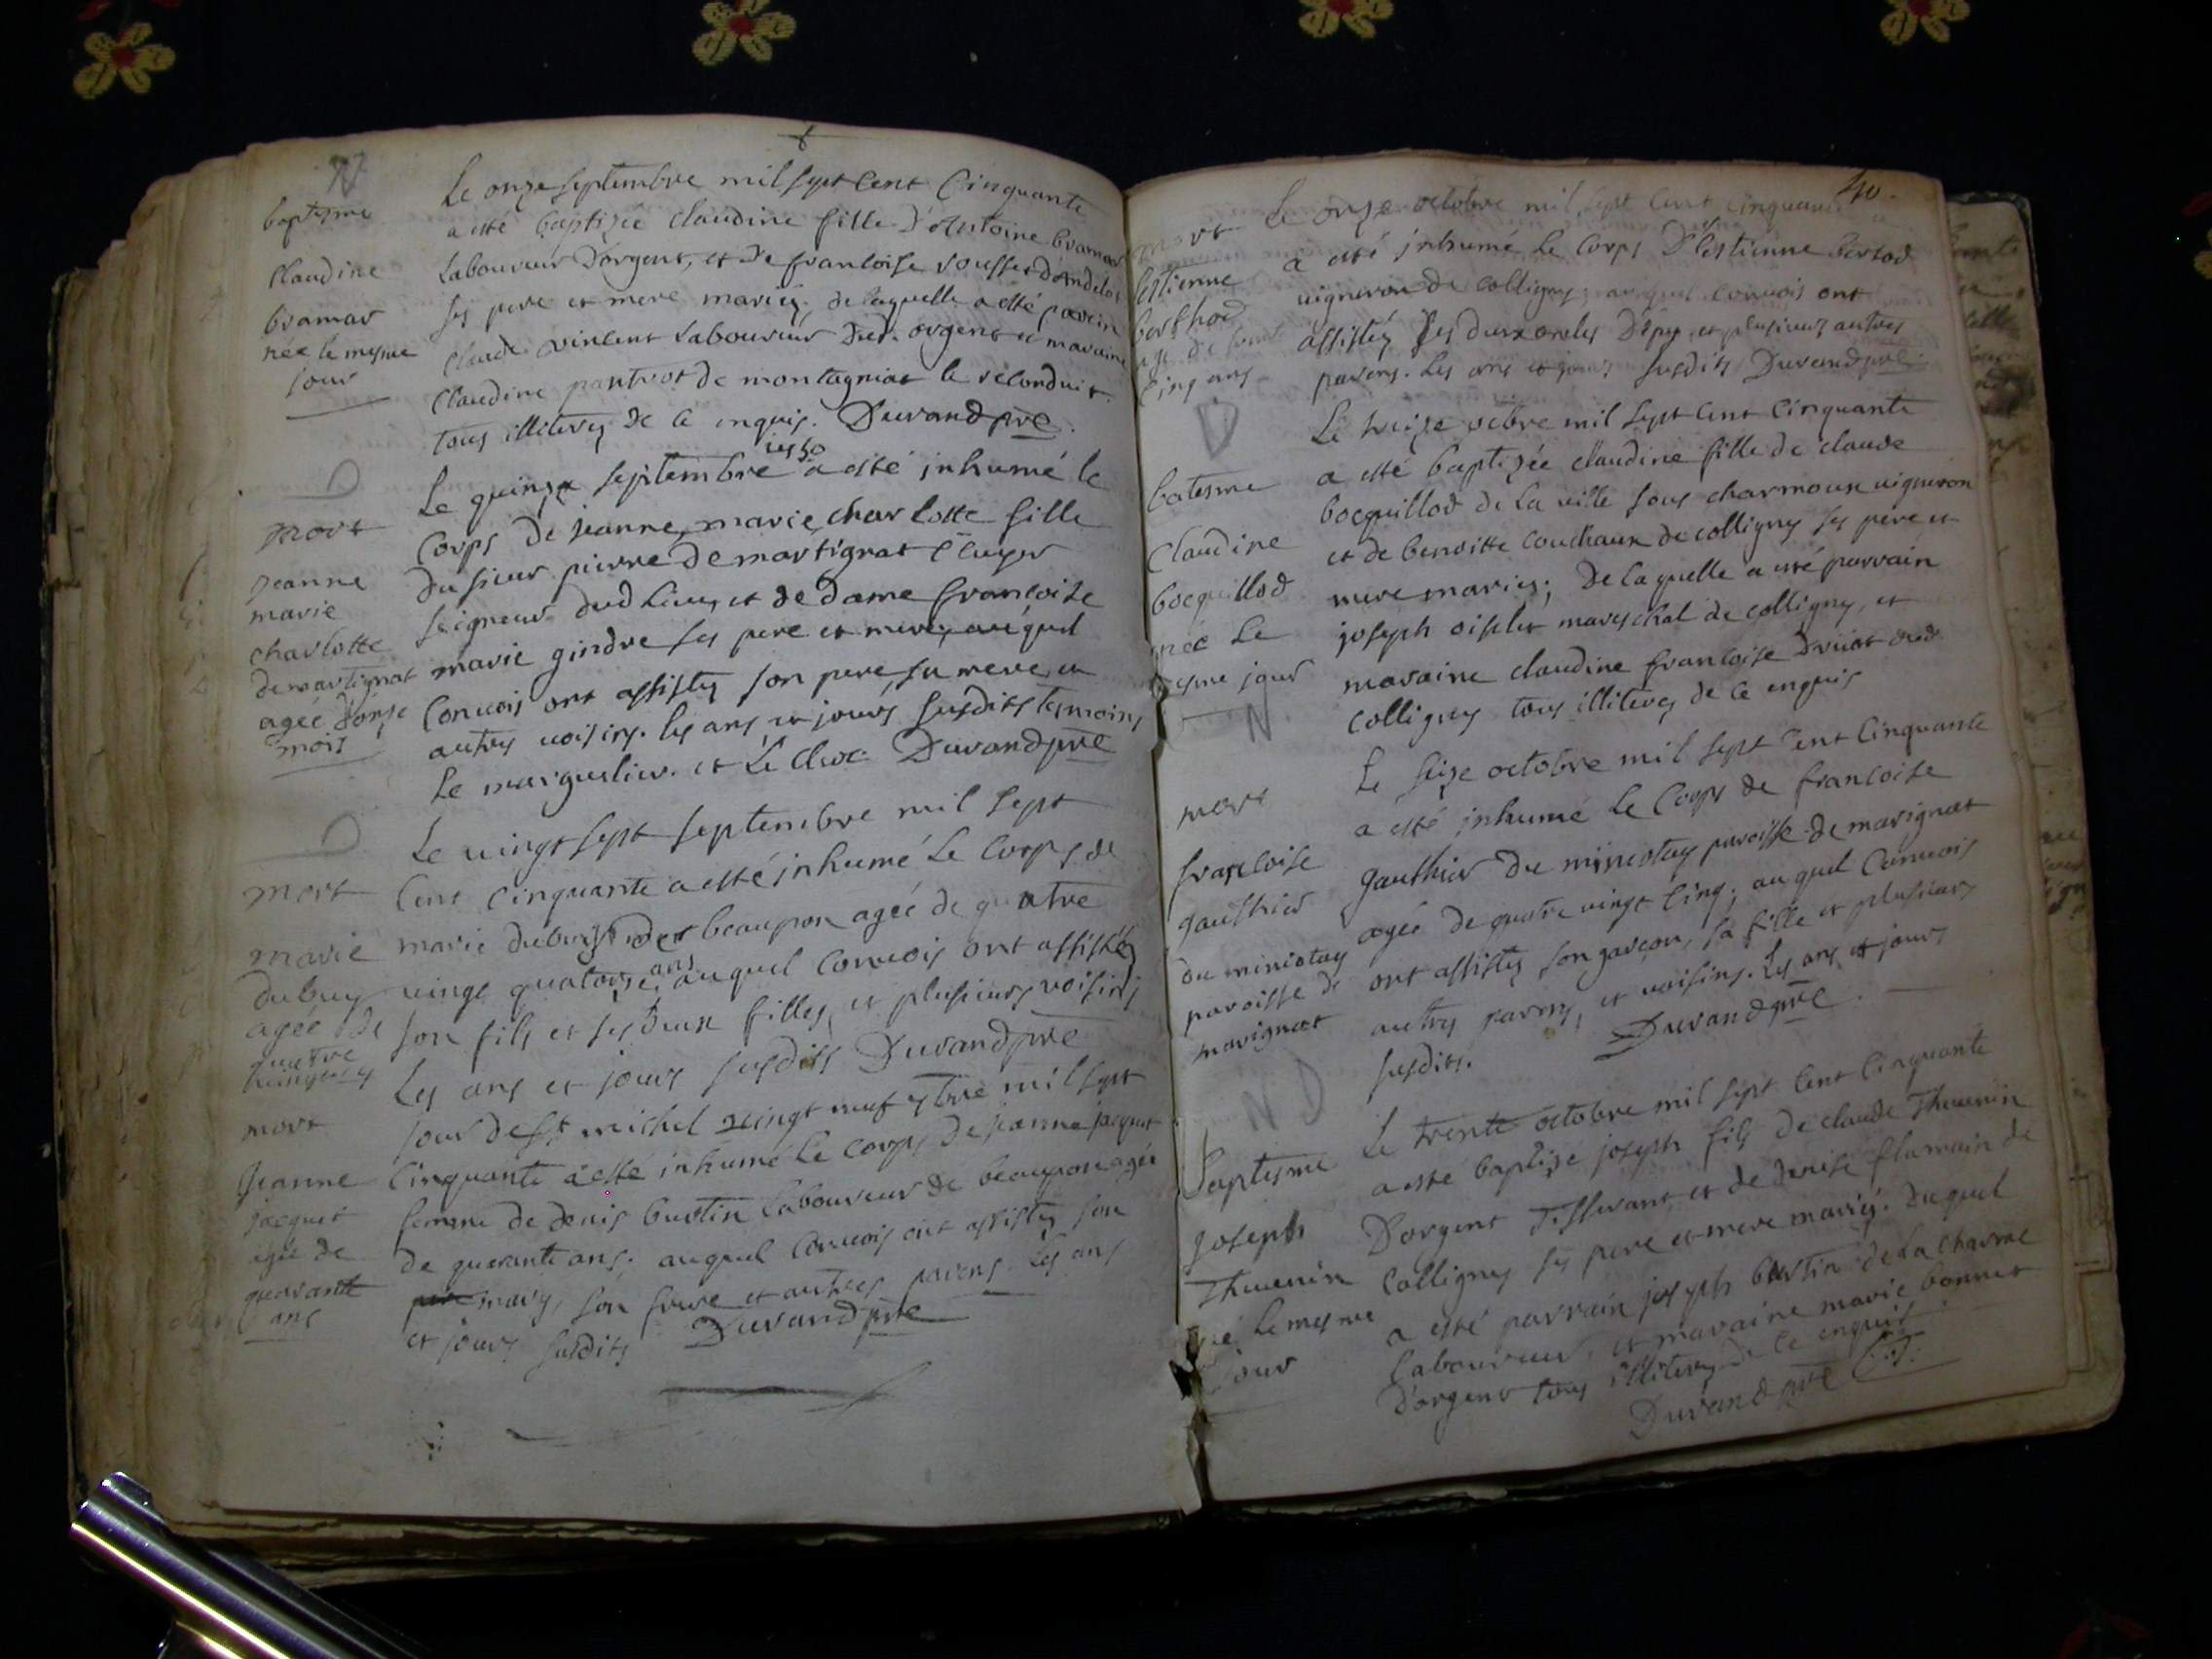 N
baptesme
Claudine
bramar
née le mesme
jour
Le onze septembre mil sept cent Cinquante
a esté baptizée claudine fille d'Antoine bramar
Laboureur d'orgent, et de francoise rousset d'andelot
ses pere et mere mariés, de laquelle a esté parrin
claude vincent Laboureur dud. orgent et maraine
Claudine pantrot de montagniat
tous illiterez de ce enquis. Durand pre.
D
mort
jeanne
marie
charlotte
demartignat
agée d'onze
mois
Le quinze septembre 1750 a esté inhumé le
Corps de jeanne, marie, charlotte fille
du sieur pierre de martignat Ecuyer
seigneur dud Lieu, et de dame francoise
marie gindre ses pere et mere, auquel
Convois ont assistez son pere, sa mere, et
autres voisins. les ans, et jours susdits tesmoins
Le marguelier. et Le Clerc. Durand pre
D
mort
marie
dubuy
agée de
quatre
Le vingt sept septembre mil sept
Cent Cinquante a esté inhumé Le Corps de
marie dubuy de beaupon agée de quatre
vingt quatorze ans, auquel Convois ont assistéz
son fils et ses deux filles, et plusieurs voisins
Les ans et jours susdits Durand pre
mort
jeanne
jacquet
agée de
quarante
ans
jour de st michel vingt neuf 7bre mil sept
Cinquante a esté inhumé Le corps de jeanne jacquet
femme de denis bustin Laboureur de beaupon agée
de quarante ans. auquel Convois ont assistez son
mary, son frere et autres parens. Les ans
et jours susdits Durand pre
40.
mort
Estienne
berthod
Cinq ans
Le onze octobre mil sept cent cinquante
a esté inhumé Le Corps d'Estienne bertod
vigneron de Colligny; auquel Convois ont
assistéz ses deux oncles et plusieurs autres
parens. Les ans et jours susdits Durand pre.
D
batesme
Claudine
bocquillod
née Le
mesme jour
Le treize octbre mil sept cent Cinquante
a esté baptizée claudine fille de claude
bocquillod de La ville sous charmoux vigneron
et de benoitte couchaux de colligny ses pere et
mere mariez; De laquelle a esté parrain
joseph oiselet mareschal de colligny, et
maraine claudine francoise druot dud.
Colligny tous illiterez de ce enquis
N
mort
francoise
gauthier
du miniotay
paroisse de
marignat
Le seize octobre mil sept cent Cinquante
a esté inhumé Le Corps de francoise
gauthier du miniotay paroisse de marignat
agée de quatre vingt Cinq; auquel Convois
ont assistez son garcon, sa fille et plusieurs
autres parens, et voisins. Les ans et jours
susdits. Durand pre.
N D
Baptesme
joseph
Thuenin
né Le mesme
jour
Le trente octobre mil sept Cent Cinquante
a esté baptizé joseph fils de claude Thuenin
D'orgent Tisserant, et de denise flamain de
Colligny ses pere et mere mariéz. Duquel
a esté parrain joseph bustin de La charme
Laboureur, et maraine marie bonnet
d'orgent tous illiterez de ce enquis
Durand pre